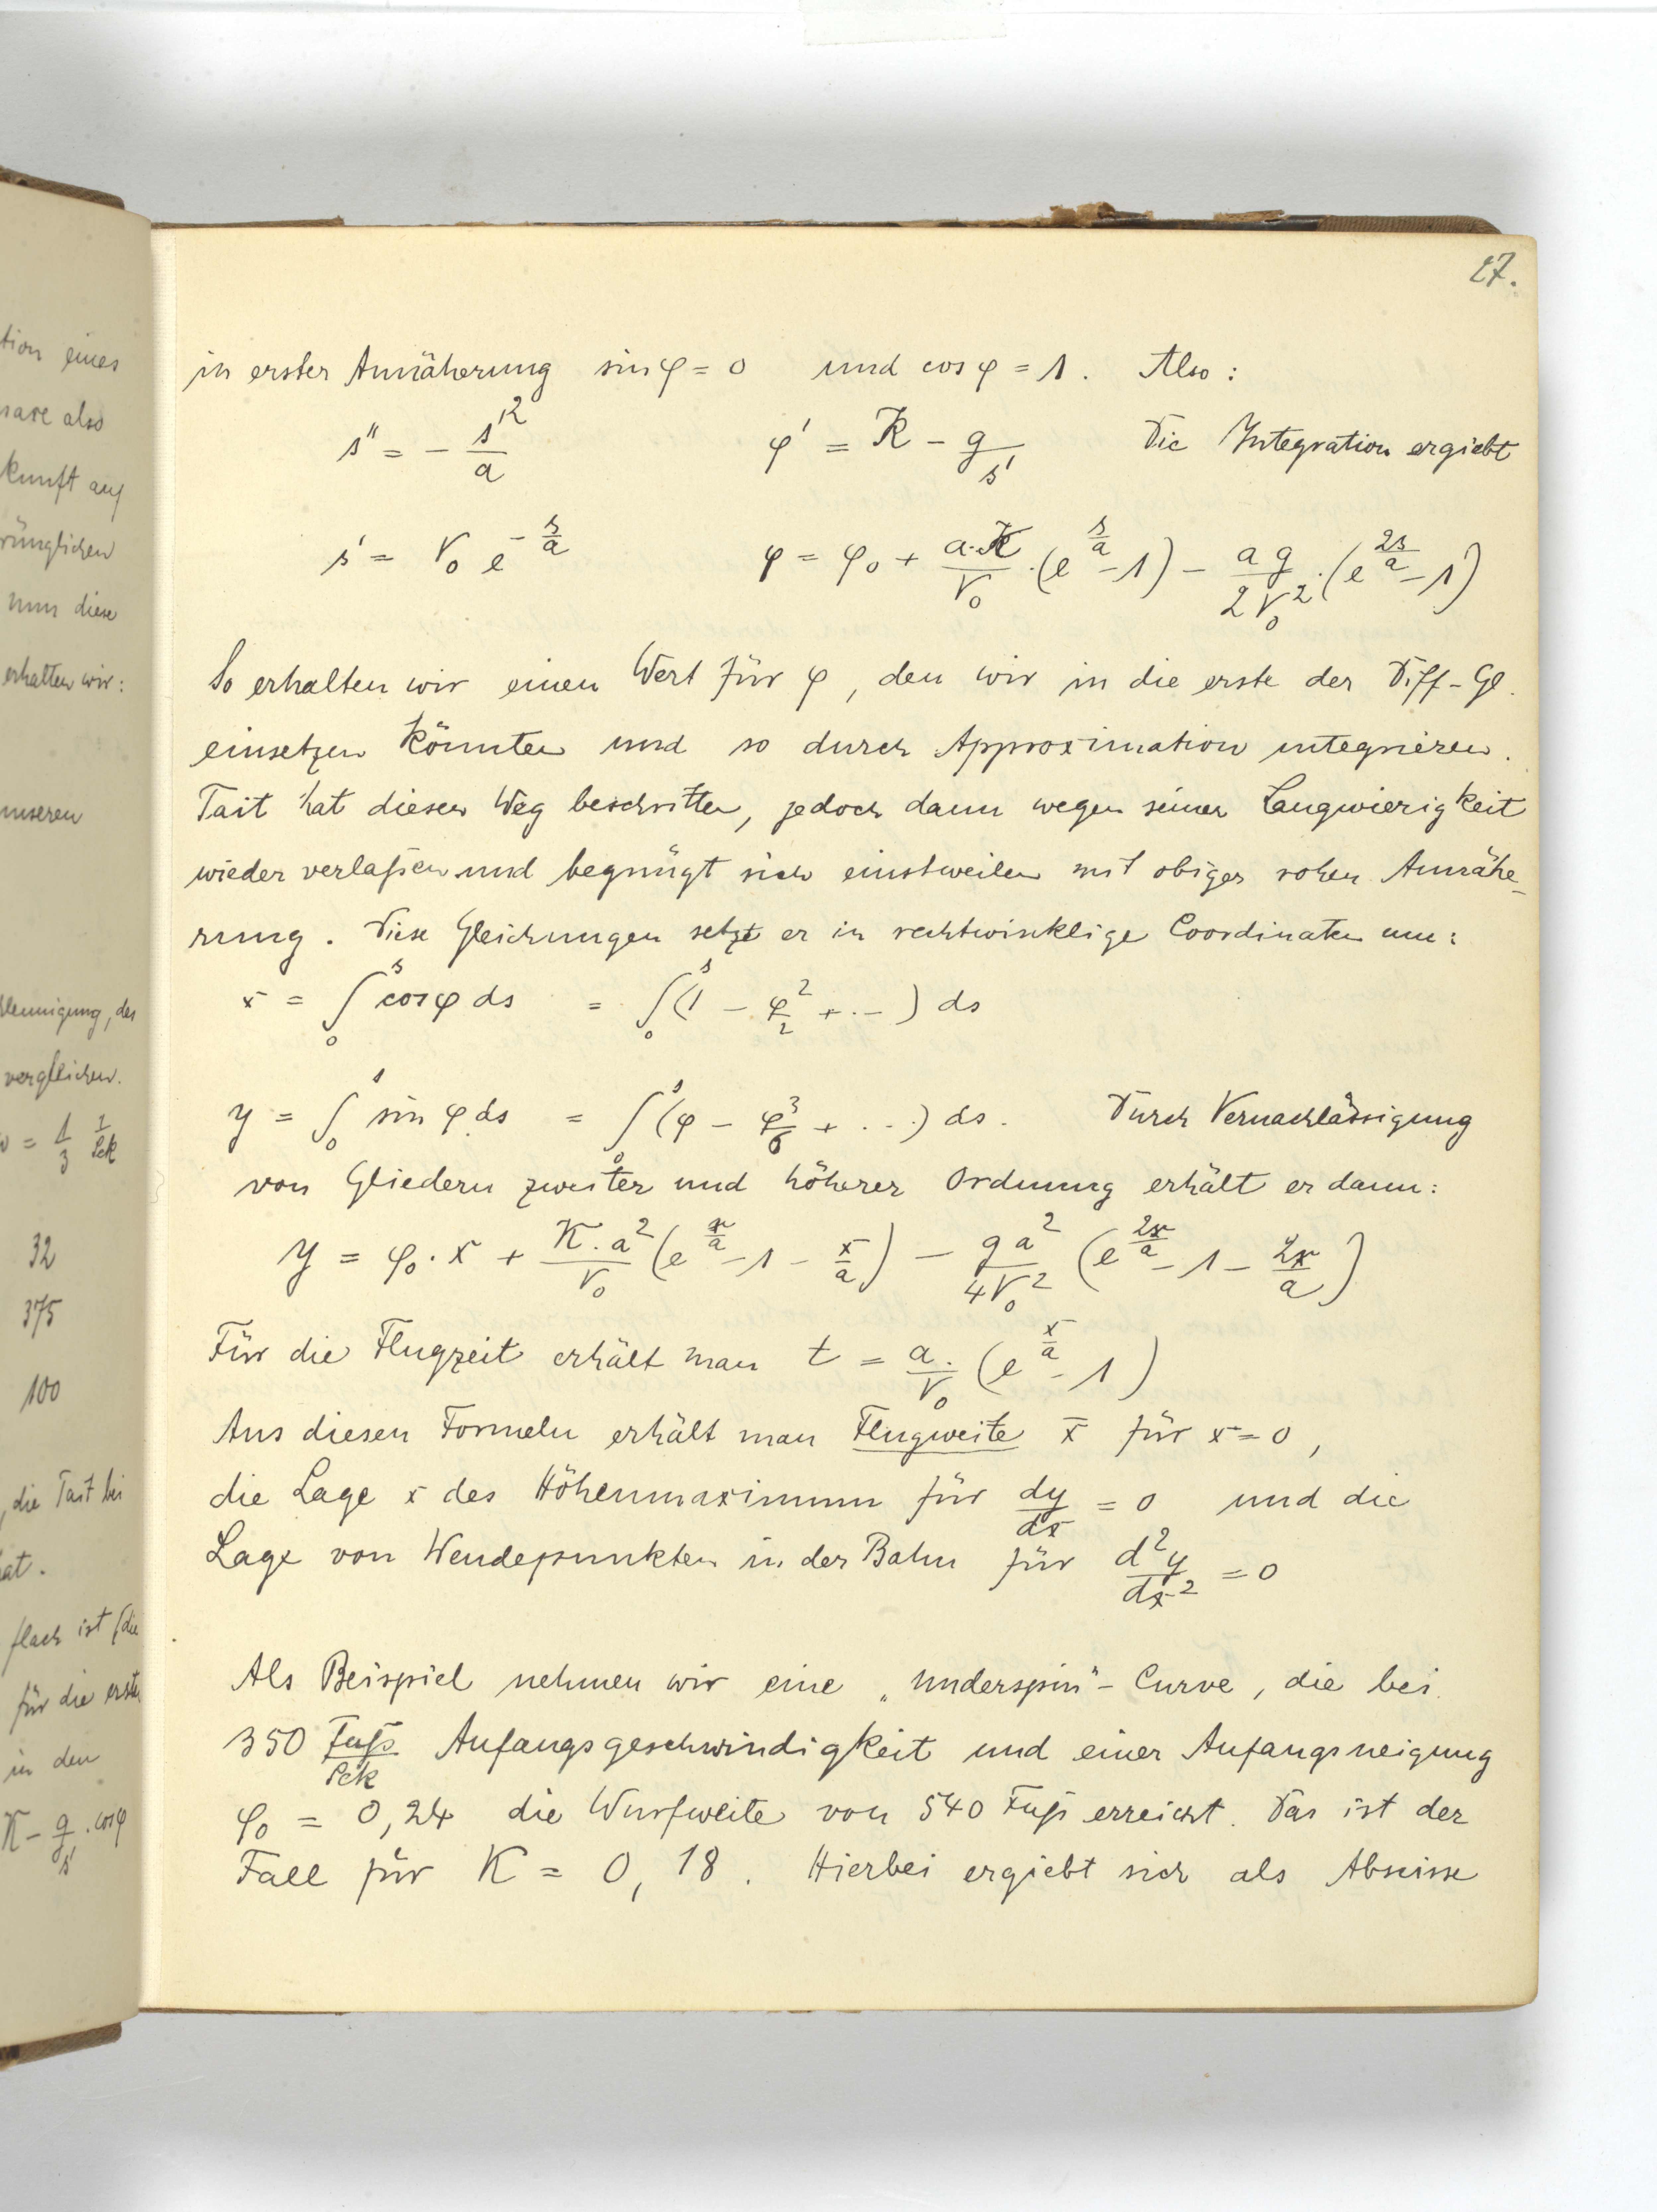 tion eines
kunft auf
rünglichen
nun diese
erhalten wir:
unseren
vergleichen.
= 1/3 1/Sek
32
375
100
, die Tait bei
hat.
flach ist (die
für die erste
in den
K - g/s' . cos φ
27.
in erster Annäherung sin φ = 0 und cos φ = 1. Also:
s'' = - s'²/a φ' = K - g/s' Die Integration ergiebt
s' = V₀ e^(-s/a) φ = φ₀ + a·K/V₀ · (e^(s/a) - 1) - ag/2V₀² · (e^(2s/a) - 1)
So erhalten wir einen Wert für φ, den wir in die erste der Diff-Gl.
einsetzen könnten und so durch Approximation integrieren.
Tait hat diesen Weg beschritten, jedoch dann wegen seiner Langwierigkeit
wieder verlaßen und begnügt sich einstweilen mit obiger rohen Annähe-
rung. Diese Gleichungen setzt er in rechtwinklige Coordinaten um:
x = ∫₀ˢ cos φ ds = ∫₀ˢ (1 - φ²/2 + ...) ds
y = ∫₀ˢ sin φ ds = ∫₀ˢ (φ - φ³/6 + ...) ds. Durch Vernachlässigung
von Gliedern zweiter und höherer Ordnung erhält er dann:
y = φ₀·x + K·a²/V₀ (e^(x/a) - 1 - x/a) - ga²/4V₀² (e^(2x/a) - 1 - 2x/a)
Für die Flugzeit erhält man t = a/V₀ · (e^(x/a) - 1)
Aus diesen Formeln erhält man Flugweite x̄ für x = 0,
die Lage x des Höhenmaximum für dy/dx = 0 und die
Lage von Wendepunkten in der Bahn für d²y/dx² = 0
Als Beispiel nehmen wir eine „underspin"- Curve, die bei
350 Fuß/Sek Anfangsgeschwindigkeit und einer Anfangsneigung
φ₀ = 0,24 die Wurfweite von 540 Fuß erreicht. Das ist der
Fall für K = 0,18. Hierbei ergiebt sich als Abscisse